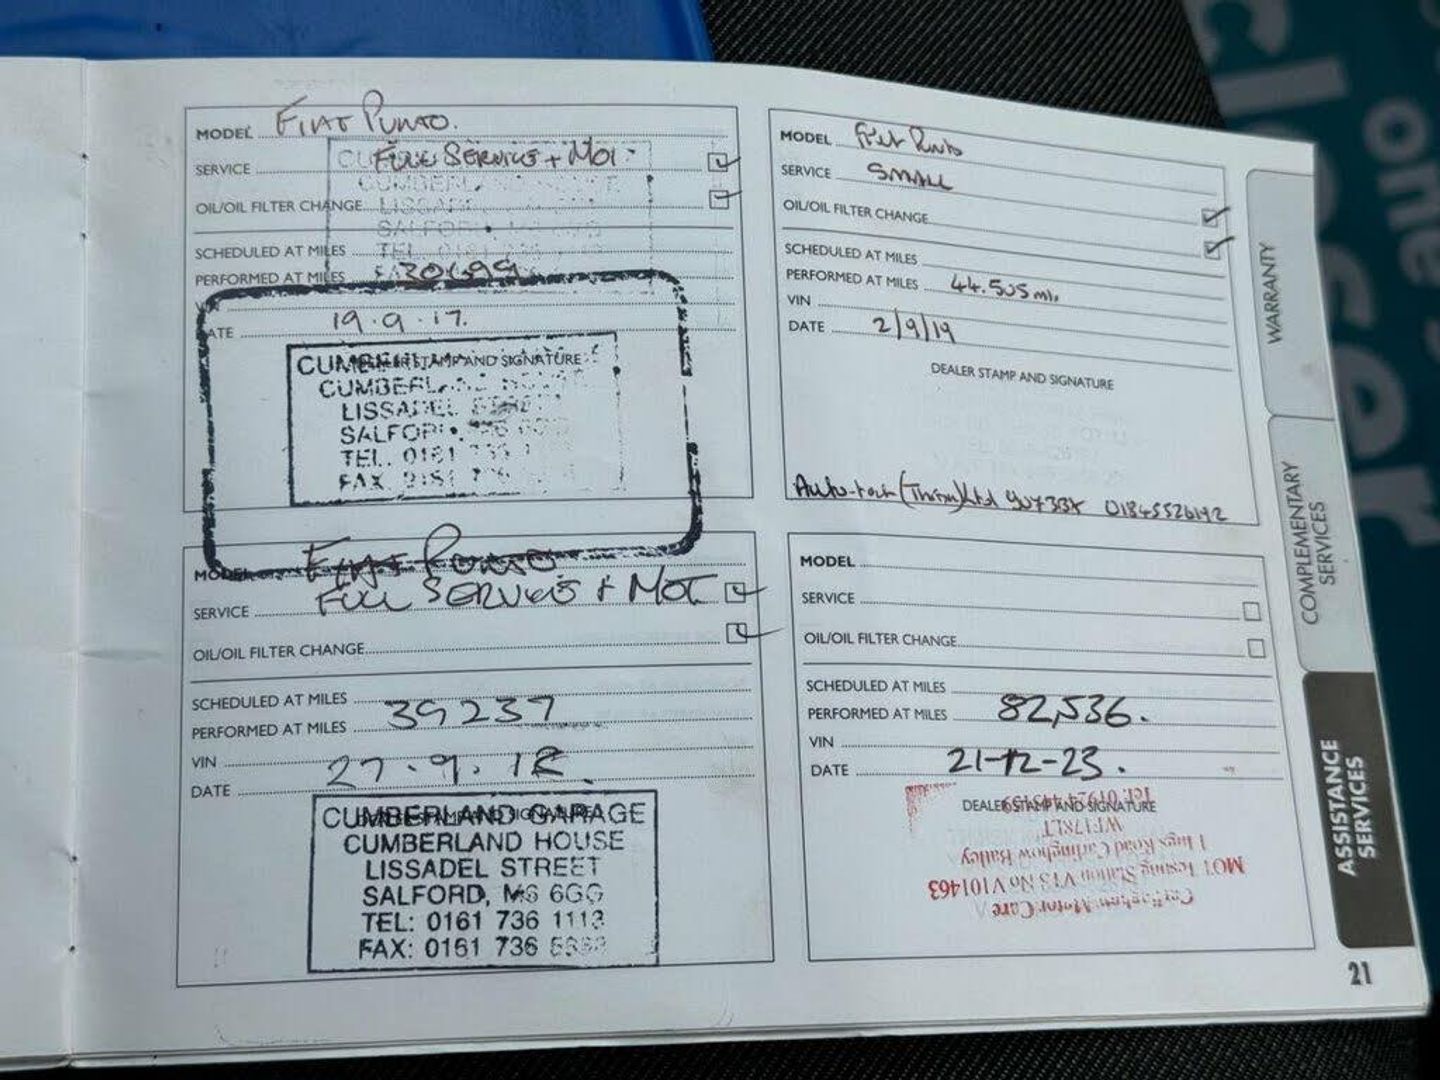 MODEL FIAT PUNTO.
SERVICE FULL SERVICE + MOT.
OIL/OIL FILTER CHANGE
SCHEDULED AT MILES
PERFORMED AT MILES 30699
DATE 19.9.17.
DEALER STAMP AND SIGNATURE
CUMBERLAND
CUMBERLAND HOUSE
LISSADEL STREET
SALFORD,
TEL. 0161 736
FAX 0161 736
MODEL FIAT PUNTO
SERVICE FULL SERVICE + MOT
OIL/OIL FILTER CHANGE
SCHEDULED AT MILES
PERFORMED AT MILES 39237
VIN
DATE 27.9.18.
DEALER STAMP AND SIGNATURE
CUMBERLAND GARAGE
CUMBERLAND HOUSE
LISSADEL STREET
SALFORD, M6 6GG
TEL: 0161 736 1113
FAX: 0161 736
MODEL Fiat Punto
SERVICE SMALL
OIL/OIL FILTER CHANGE
SCHEDULED AT MILES
PERFORMED AT MILES 44.505 mls
VIN
DATE 2/9/19
DEALER STAMP AND SIGNATURE
Auto-tech (Thirsk) Ltd YO7 3BX 01845526192
MODEL
SERVICE
OIL/OIL FILTER CHANGE
SCHEDULED AT MILES
PERFORMED AT MILES 82,536.
VIN
DATE 21-12-23.
DEALER STAMP AND SIGNATURE
Carlinghow Motor Care
MOT Testing Station VTS No V101463
1 Ings Road Carlinghow Batley
WF17 8LT
Tel: 01924
WARRANTY
COMPLEMENTARY
SERVICES
ASSISTANCE
SERVICES
21
one
closer